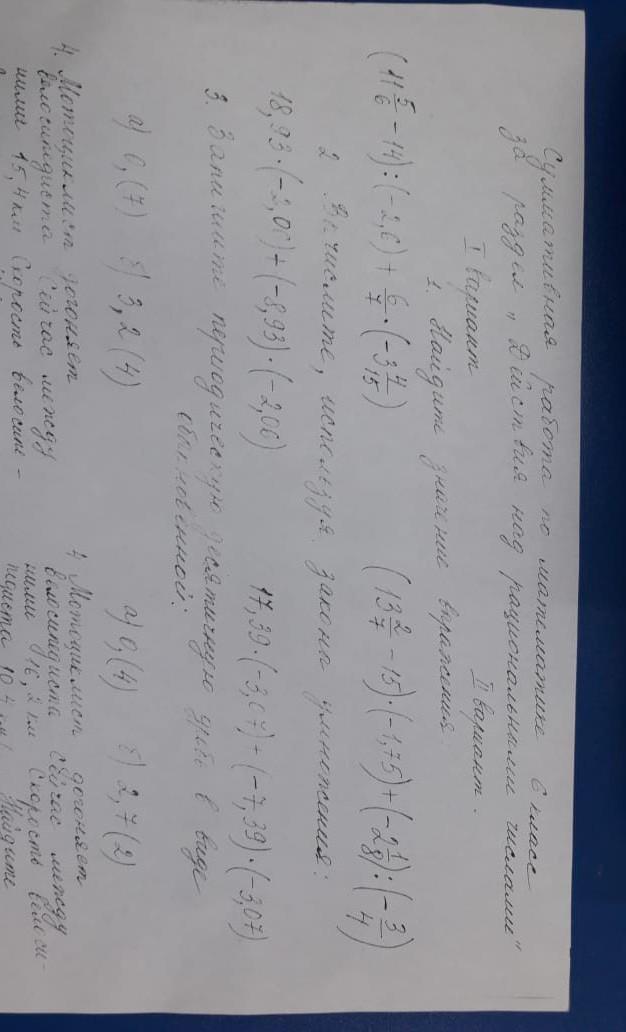 Суммативная работа по математике 6 класс
за раздел „Действия над рациональными числами"
I вариант II вариант.
1. Найдите значение выражения.
(11 5/6 - 14) : (-2,6) + 6/7 · (-3 4/15) (13 2/7 - 15) · (-1,75) + (-2 1/8) : (-3/4)
2 Вычислите, используя законы умножения:
18,93 · (-2,06) + (-8,93) · (-2,06) 17,39 · (-3,07) + (-7,39) · (-3,07)
3. Запишите периодическую десятичную дробь в виде
обыкновенной:
а) 0,(7) б) 3,2(4) а) 0,(4) б) 2,7(2)
4. Мотоциклист догоняет 4 Мотоциклист догоняет
велосипедиста Сейчас между велосипедиста Сейчас между
ними 15,4 км Скорость велосипе- ними 16,2 км Скорость велоси-
педиста Найдите